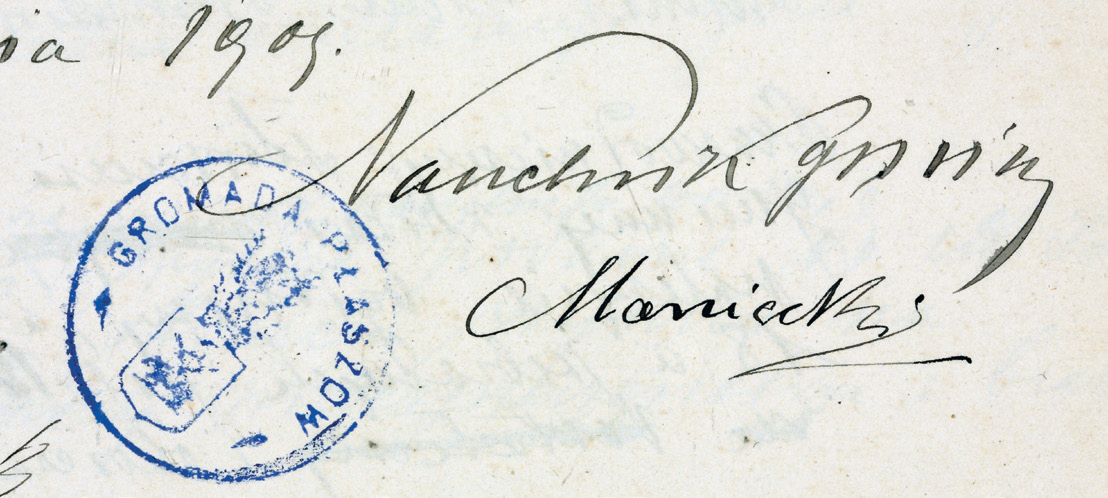 ia 1909.
Naczelnik gminy
Maniecki
GROMADA PŁASZOW